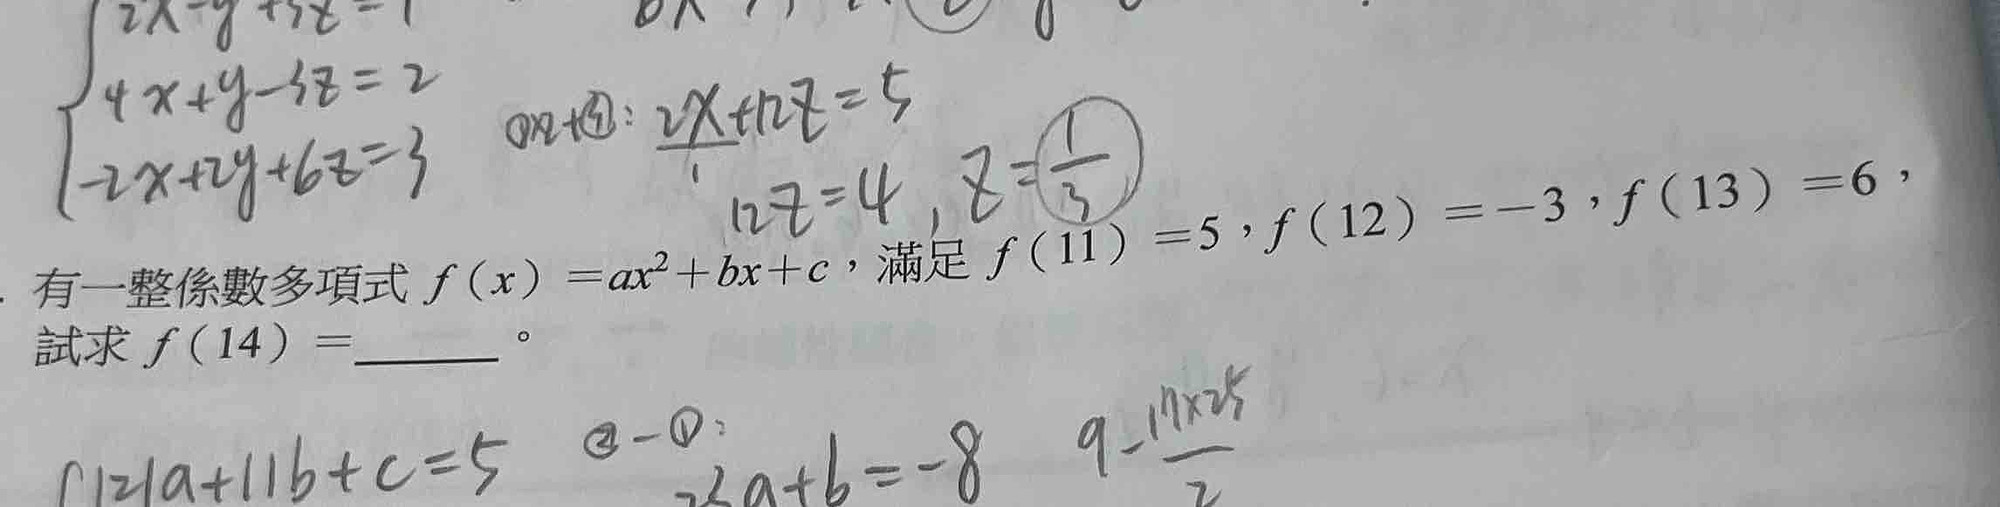 2x-y+3z=1
4x+y-3z=2
-2x+2y+6z=3
①×2+③: 2x+12z=5
1
12z=4, z=1/3
有一整係數多項式 f(x)=ax²+bx+c，滿足 f(11)=5，f(12)=-3，f(13)=6，
試求 f(14)=______。
121a+11b+c=5
②-①:
23a+b=-8
9-17×25/2